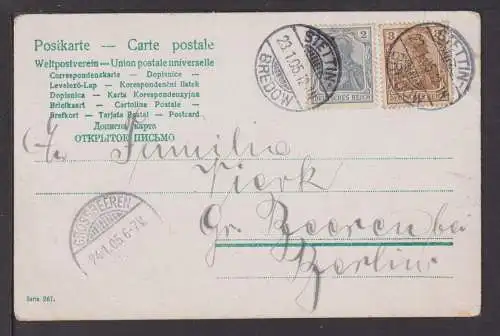 Posikarte — Carte postale
Weltpostverein — Union postale universelle
Correspondenzkarte – Dopisnice –
Levelező-Lap – Korespondenční lístek
Dopisnica – Karta Korespondencyjna
Brefkaart – Cartolina Postale –
Brefkort – Tarjeta Postal – Postcard
Дописна карта
ОТКРЫТОЕ ПИСЬМО
STETTIN
23.1.05
BREDOW
2
DEUTSCHES REICH
3
STETTIN
Familie
Pierk
Gr. Beeren bei
Berlin.
GROSSBEEREN
24.1.05.6-7V.
Serie 261.